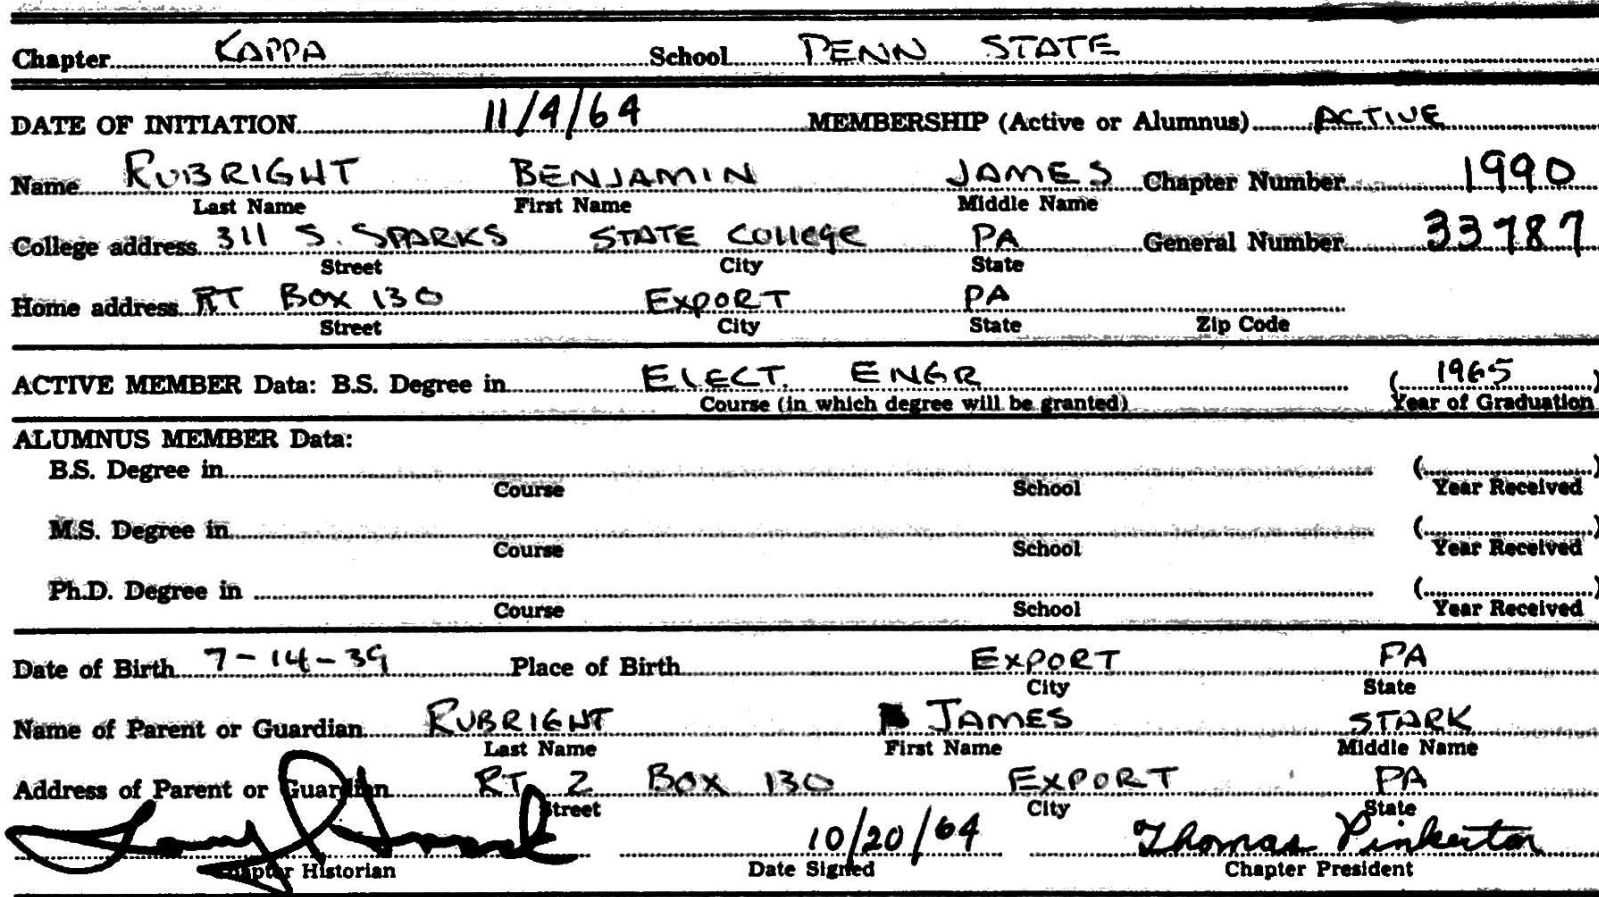 Chapter KAPPA School PENN STATE
DATE OF INITIATION 11/4/64 MEMBERSHIP (Active or Alumnus) ACTIVE
Name RUBRIGHT BENJAMIN JAMES Chapter Number 1990
Last Name First Name Middle Name
College address 311 S. SPARKS STATE COllEgE PA General Number 33787
Street City State
Home address RT BOX 130 EXPORT PA
Street City State Zip Code
ACTIVE MEMBER Data: B.S. Degree in ELECT. ENGR (1965)
Course (in which degree will be granted) Year of Graduation
ALUMNUS MEMBER Data:
B.S. Degree in ( )
Course School Year Received
M.S. Degree in ( )
Course School Year Received
Ph.D. Degree in ( )
Course School Year Received
Date of Birth 7-14-39 Place of Birth EXPORT PA
City State
Name of Parent or Guardian RUBRIGHT JAMES STARK
Last Name First Name Middle Name
Address of Parent or Guardian RT 2 BOX 130 EXPORT PA
Street City State
10/20/64 Thomas Pinkerton
Chapter Historian Date Signed Chapter President